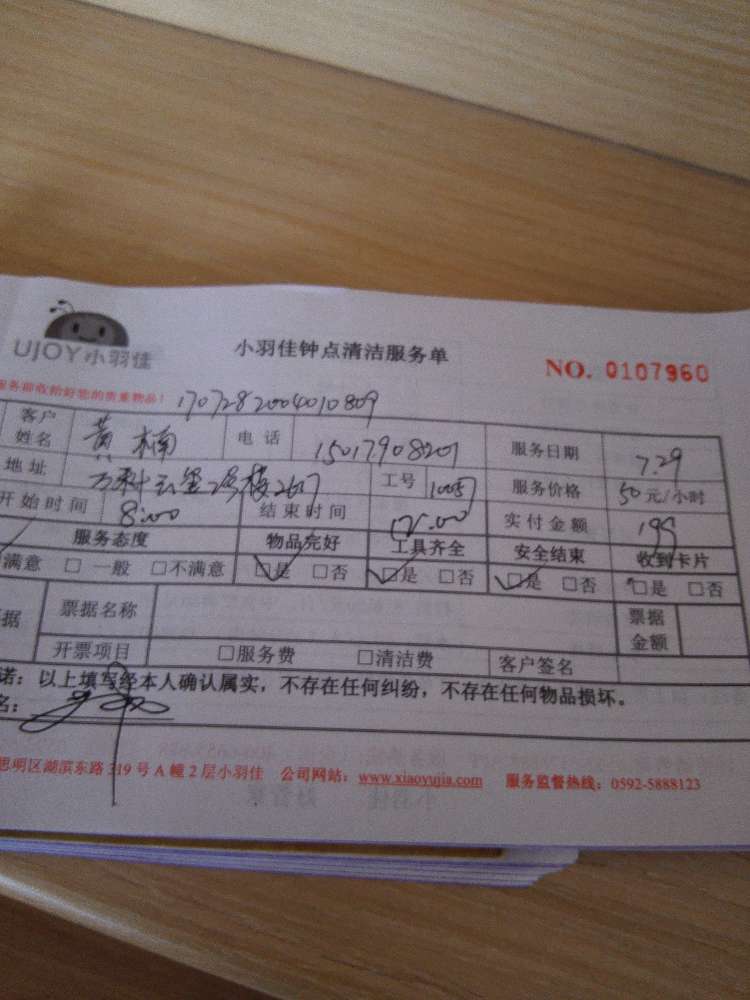 UJOY小羽佳
小羽佳钟点清洁服务单
NO. 0107960
服务前收拾好您的贵重物品!
1707282004010809
客户姓名 黄楠 电话 15017908201 服务日期 7.29
地址 万科云玺 号楼2617 工号 服务价格 50元/小时
开始时间 8:00 结束时间 12:00 实付金额 199
服务态度 物品完好 工具齐全 安全结束 收到卡片
满意 □一般 □不满意 □是 □否 □是 □否 □是 □否 □是 □否
据 票据名称 票据金额
开票项目 □服务费 □清洁费 客户签名
诺:以上填写经本人确认属实,不存在任何纠纷,不存在任何物品损坏。
名:
思明区湖滨东路319号A幢2层小羽佳 公司网站:www.xiaoyujia.com 服务监督热线:0592-5888123